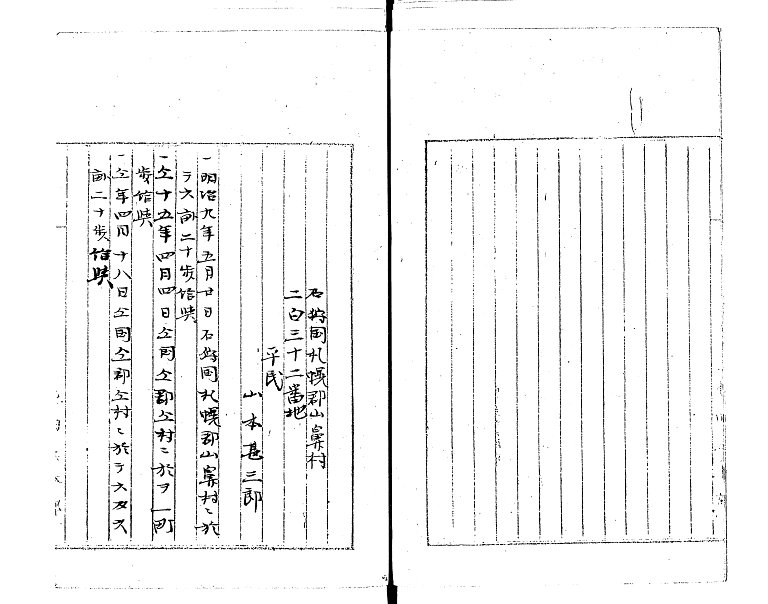 石狩国札幌郡山鼻村
二百三十二番地
平民
山本甚三郎
一明治九年五月廿日石狩国札幌郡山鼻村ニ於
テ六畝二十歩
一仝十五年四月四日仝国仝郡仝村ニ於テ一町
歩
一仝年四月十八日仝国仝郡仝村ニ於テ六反
畝二十歩